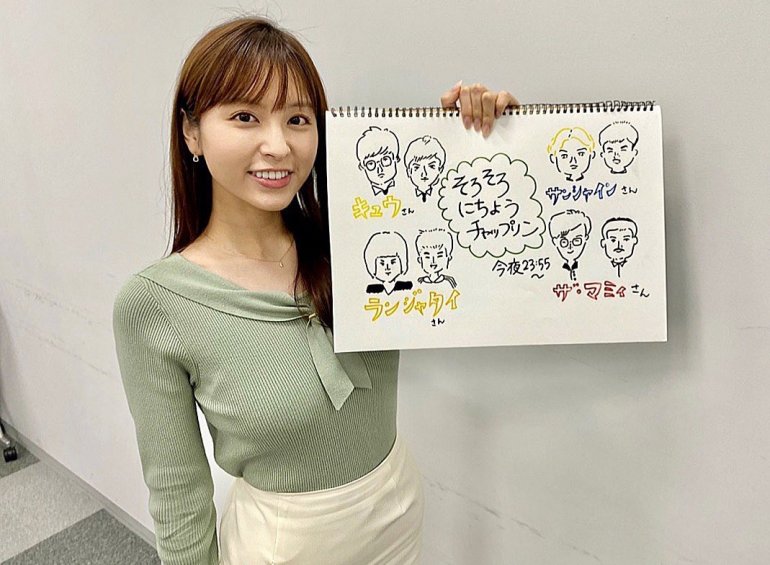 キュウさん
そろそろ
にちよう
チャップリン
今夜23:55〜
サンシャインさん
ランジャタイさん
ザ・マミィさん